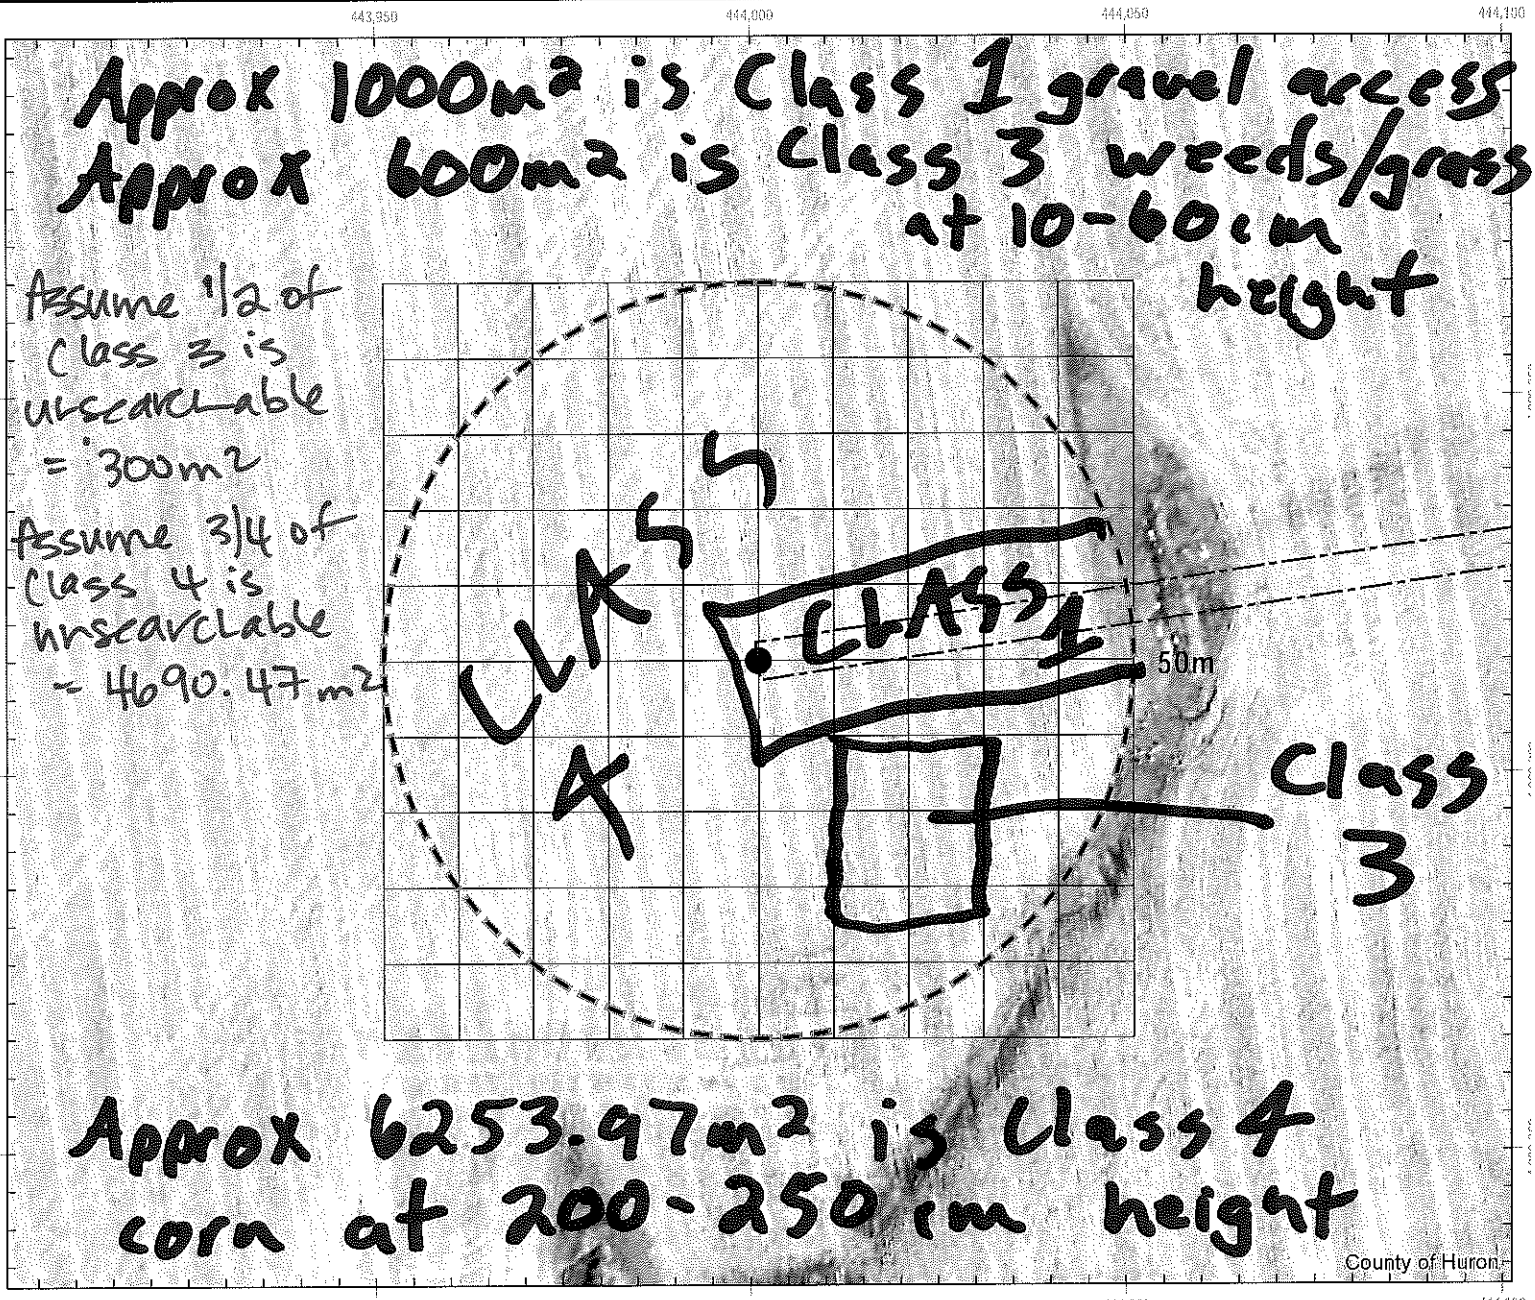 443,950 444,000 444,050 444,100
Approx 1000m² is Class 1 gravel access
Approx 600m² is Class 3 weeds/grass
at 10-60cm
height
Assume 1/2 of
Class 3 is
unsearchable
= 300m²
Assume 3/4 of
Class 4 is
unsearchable
= 4690.47m²
CLASS
4
CLASS 1
50m
Class
3
Approx 6253.97m² is Class 4
corn at 200-250cm height
County of Huron